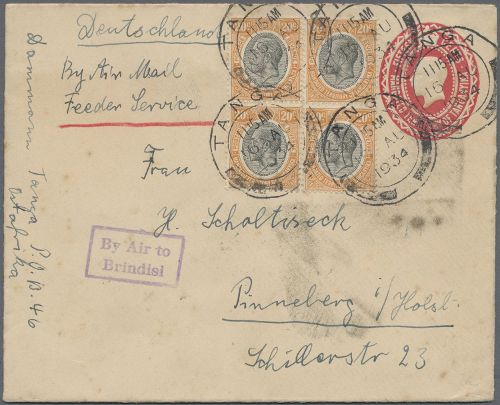 Deutschland
By Air Mail
Feeder Service
Frau
H. Scholtiseck
Pinneberg i/Holst.
Schillerstr 23
By Air to
Brindisi
Dammann Tanga P.O.B. 46
Ostafrika
TANGA
11.15 AM
AU
1934
TANGA
11.15 AM
TANGA
11.15 AM
TANGA
AU
1934
TANGA
11.15 AM
20
20
20
20